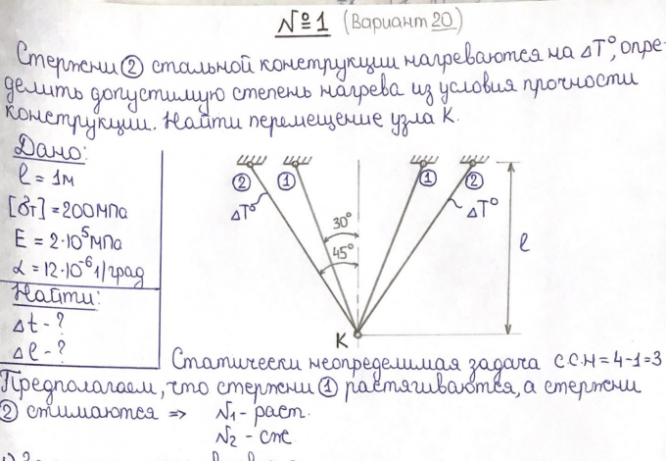 №1 (Вариант 20)
Стержни ② стальной конструкции нагреваются на ΔT°, опре-
делить допустимую степень нагрева из условия прочности
конструкции. Найти перемещение узла K.
Дано:
ℓ = 1м
[σт] = 200МПа
E = 2·10⁵МПа
α = 12·10⁻⁶ 1/град
Найти:
Δt - ?
Δℓ - ?
② ① ① ②
ΔT° ΔT°
30°
45°
ℓ
K
Статически неопределимая задача С.С.Н = 4-1=3
Предполагаем, что стержни ① растягиваются, а стержни
② сжимаются ⇒ N₁ - раст.
N₂ - сж